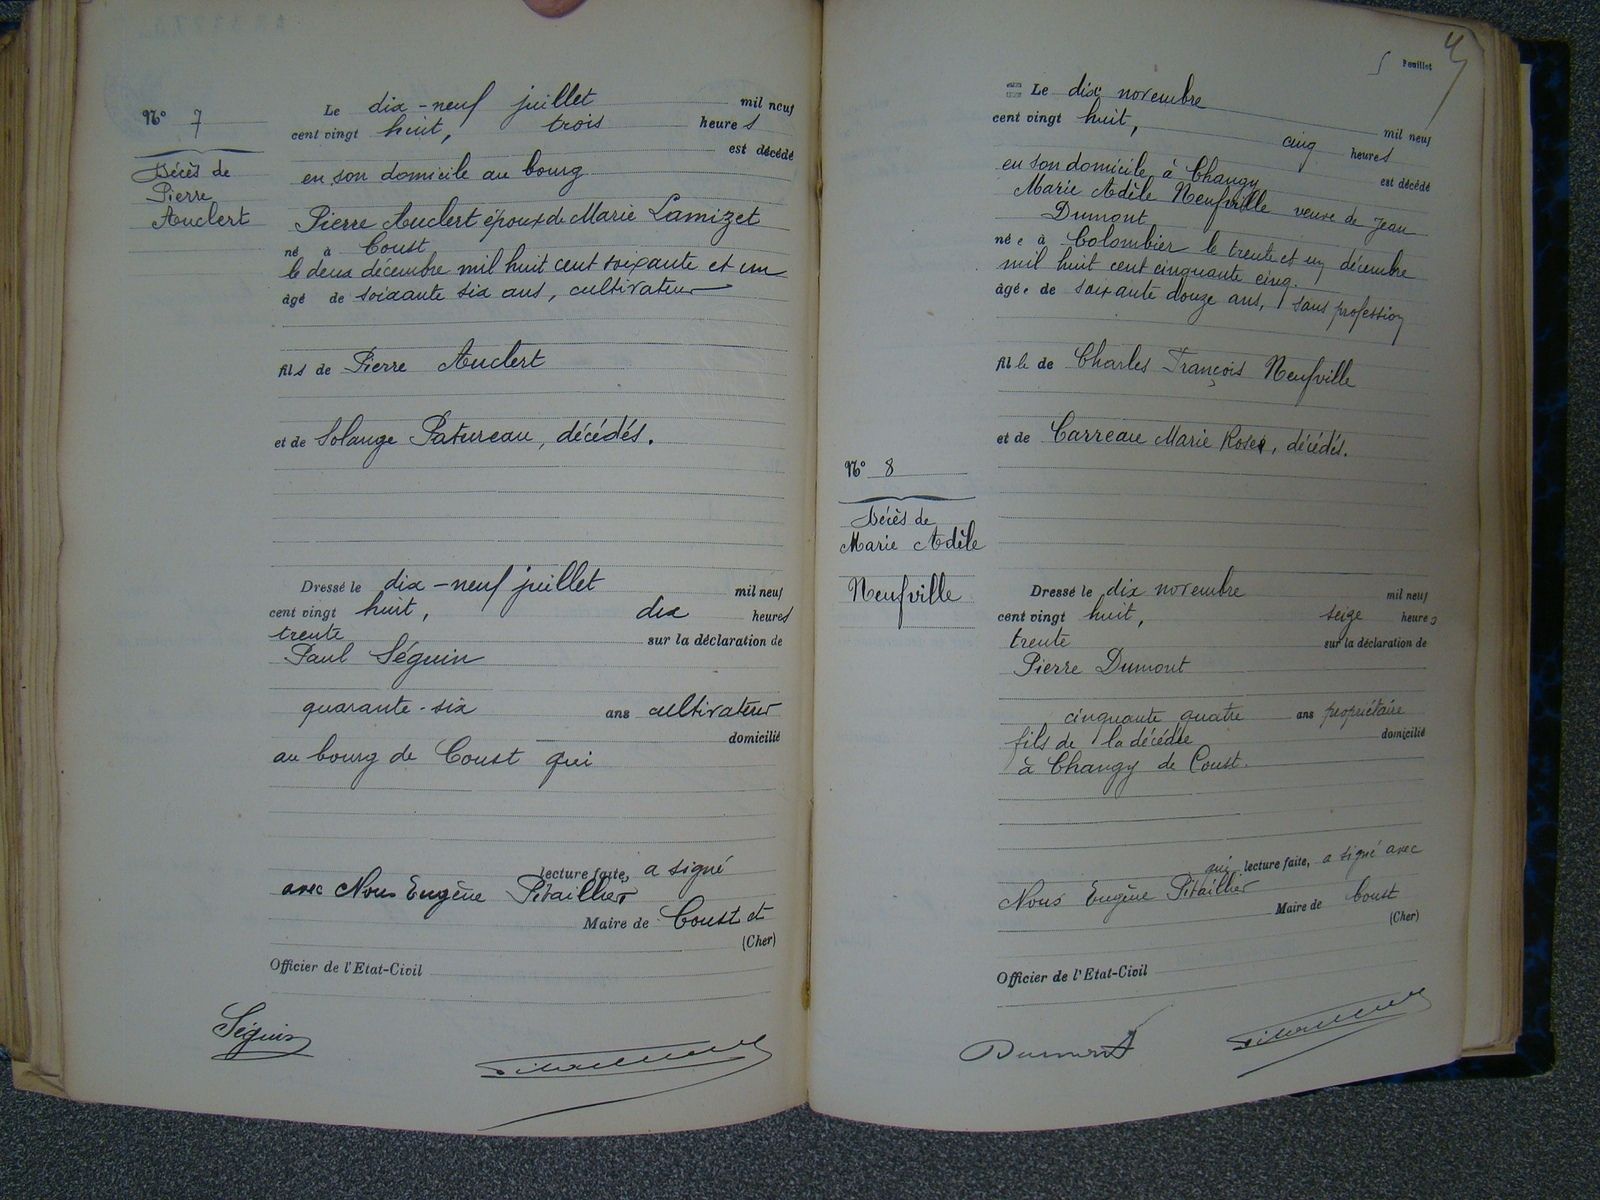 N° 7
Décès de
Pierre
Auclert
Le dix-neuf juillet mil neuf
cent vingt huit, trois heures
est décédé
en son domicile au bourg
Pierre Auclert époux de Marie Lamizet
né à Coust
le deux décembre mil huit cent soixante et un
âgé de soixante six ans, cultivateur
fils de Pierre Auclert
et de Solange Patureau, décédés.
Dressé le dix-neuf juillet mil neuf
cent vingt huit, dix heures
trente sur la déclaration de
Paul Séguin
quarante-six ans cultivateur
domicilié
au bourg de Coust qui
lecture faite, a signé
avec Nous Eugène Pitaillier
Maire de Coust et
(Cher)
Officier de l'Etat-Civil
Séguin
Feuillet
5
Le dix novembre mil neuf
cent vingt huit, cinq heures
en son domicile à Changy est décédé
Marie Adèle Neufville veuve de Jean
Dumont
née à Colombier le trente et un décembre
mil huit cent cinquante cinq.
âgée de soixante douze ans, sans profession
fille de Charles François Neufville
et de Carreau Marie Rose, décédés.
N° 8
Décès de
Marie Adèle
Neufville
Dressé le dix novembre mil neuf
cent vingt huit, seize heures
trente sur la déclaration de
Pierre Dumont
cinquante quatre ans propriétaire
fils de la décédée domicilié
à Changy de Coust.
qui lecture faite, a signé avec
Nous Eugène Pitaillier
Maire de Coust
(Cher)
Officier de l'Etat-Civil
Dumont